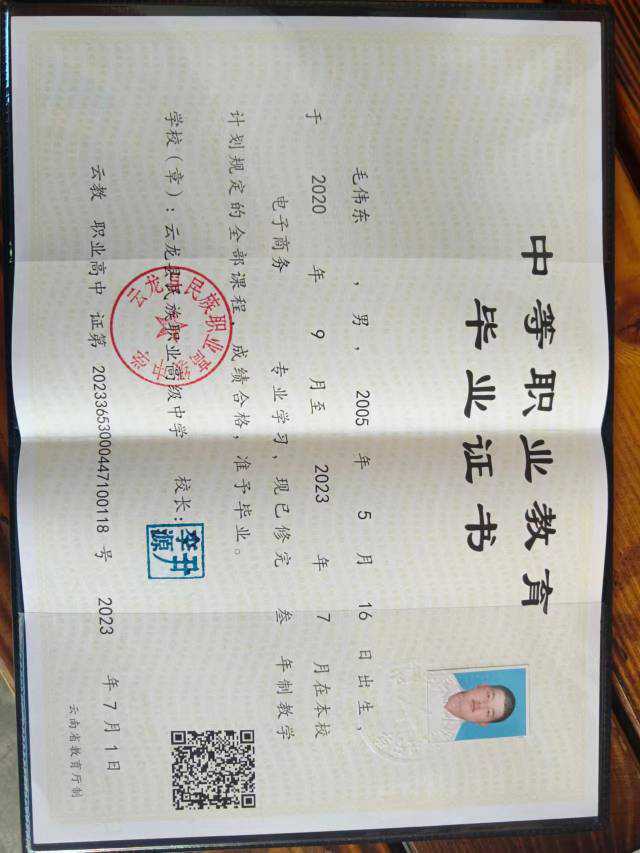 中等职业教育
毕业证书
毛伟东 ，男， 2005 年 5 月 16 日出生，
于 2020 年 9 月至 2023 年 7 月在本校
电子商务 专业学习，现已修完 叁 年制教学
计划规定的全部课程，成绩合格，准予毕业。
学校（章）：云龙县民族职业高级中学 校长：
李开源
云教 职业高中 证第 20233653000447100118 号 2023 年 7 月 1 日
云南省教育厅制
云龙县民族职业高级中学